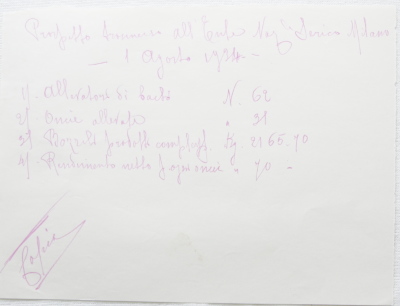 Prospetto Annuncio all'Ente Naz.le Serico Milano
— 1 Agosto 1934 —
1) Allevatori di bachi N. 62
2) Oncie allevate " 31
3) Bozzoli prodotti compless. Kg 2165.70
4) Rendimento netto per oncia " 70 —
Copia